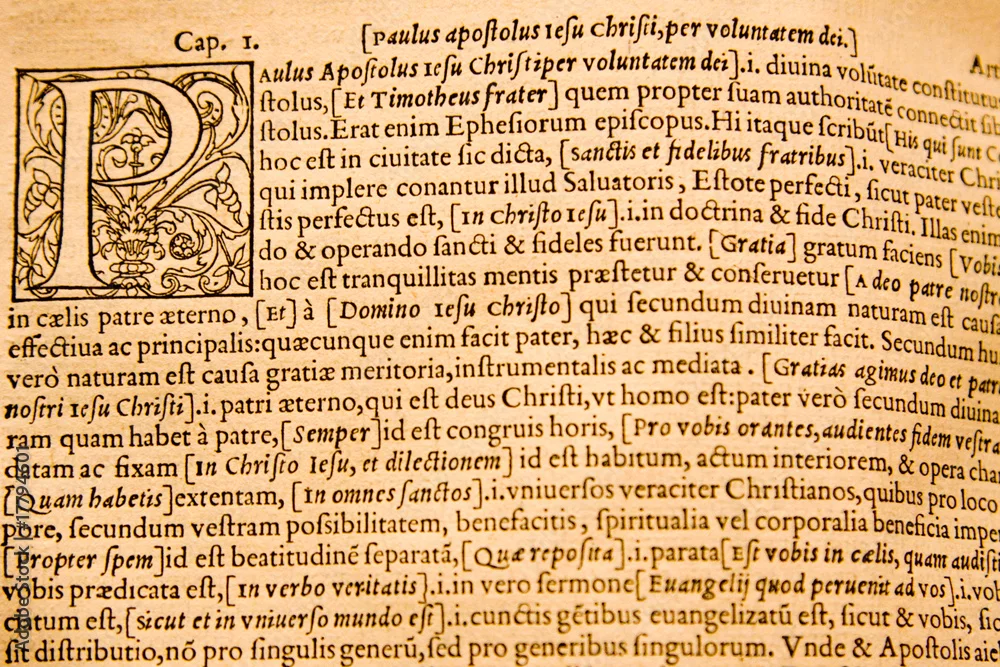 Cap. 1. [Paulus apoſtolus Ieſu Chriſti,per voluntatem dei.]
PAulus Apoſtolus Ieſu Chriſtiper voluntatem dei].i. diuina volũtate conſtitutu
ſtolus,[Et Timotheus frater] quem propter ſuam authoritatẽ connectit ſib
ſtolus.Erat enim Epheſiorum epiſcopus.Hi itaque ſcribũt[His qui ſunt C
hoc eſt in ciuitate ſic dicta, [sanctis et fidelibus fratribus].i. veraciter Chri
qui implere conantur illud Saluatoris, Eſtote perfecti, ſicut pater veſt
ſtis perfectus est, [in chriſto Ieſu].i.in doctrina & fide Chriſti. Illas enim
do & operando ſancti & fideles fuerunt. [Gratia] gratum faciens [Vobis
hoc eſt tranquillitas mentis præſtetur & conſeruetur [A deo patre noſtr
in cælis patre æterno, [Et] à [Domino Ieſu Chriſto] qui ſecundum diuinam naturam eſt cauſa
effectiua ac principalis:quæcunque enim facit pater, hæc & filius ſimiliter facit. Secundum hu
verò naturam eſt cauſa gratiæ meritoria,inſtrumentalis ac mediata. [Gratias agimus deo et patri
noſtri Ieſu Chriſti].i.patri æterno,qui eſt deus Chriſti,vt homo eſt:pater verò ſecundum diuina
ram quam habet à patre,[Semper]id eſt congruis horis, [Pro vobis orantes,audientes fidem veſtra
datam ac fixam [in Chriſto Ieſu, et dilectionem] id eſt habitum, actum interiorem, & opera cha
[Quam habetis]extentam, [in omnes ſanctos].i.vniuerſos veraciter Chriſtianos,quibus pro loco
pore, ſecundum veſtram poſsibilitatem, benefacitis, ſpiritualia vel corporalia beneficia impe
[Propter ſpem]id eſt beatitudinẽ ſeparatã,[Quæ repoſita].i.parata[Eſt vobis in cælis, quam audiſti
vobis prædicata eſt,[in verbo veritatis].i.in vero ſermone[Euangelij quod peruenit ad vos].i.vob
datum eſt,[sicut et in vniuerſo mundo eſt].i.cunctis gẽtibus euangelizatũ eſt, ſicut & vobis, ſic
ſit diſtributio,nõ pro ſingulis generũ,ſed pro generibus ſingulorum. Vnde & Apoſtolis aie
Adobe Stock | #17946011